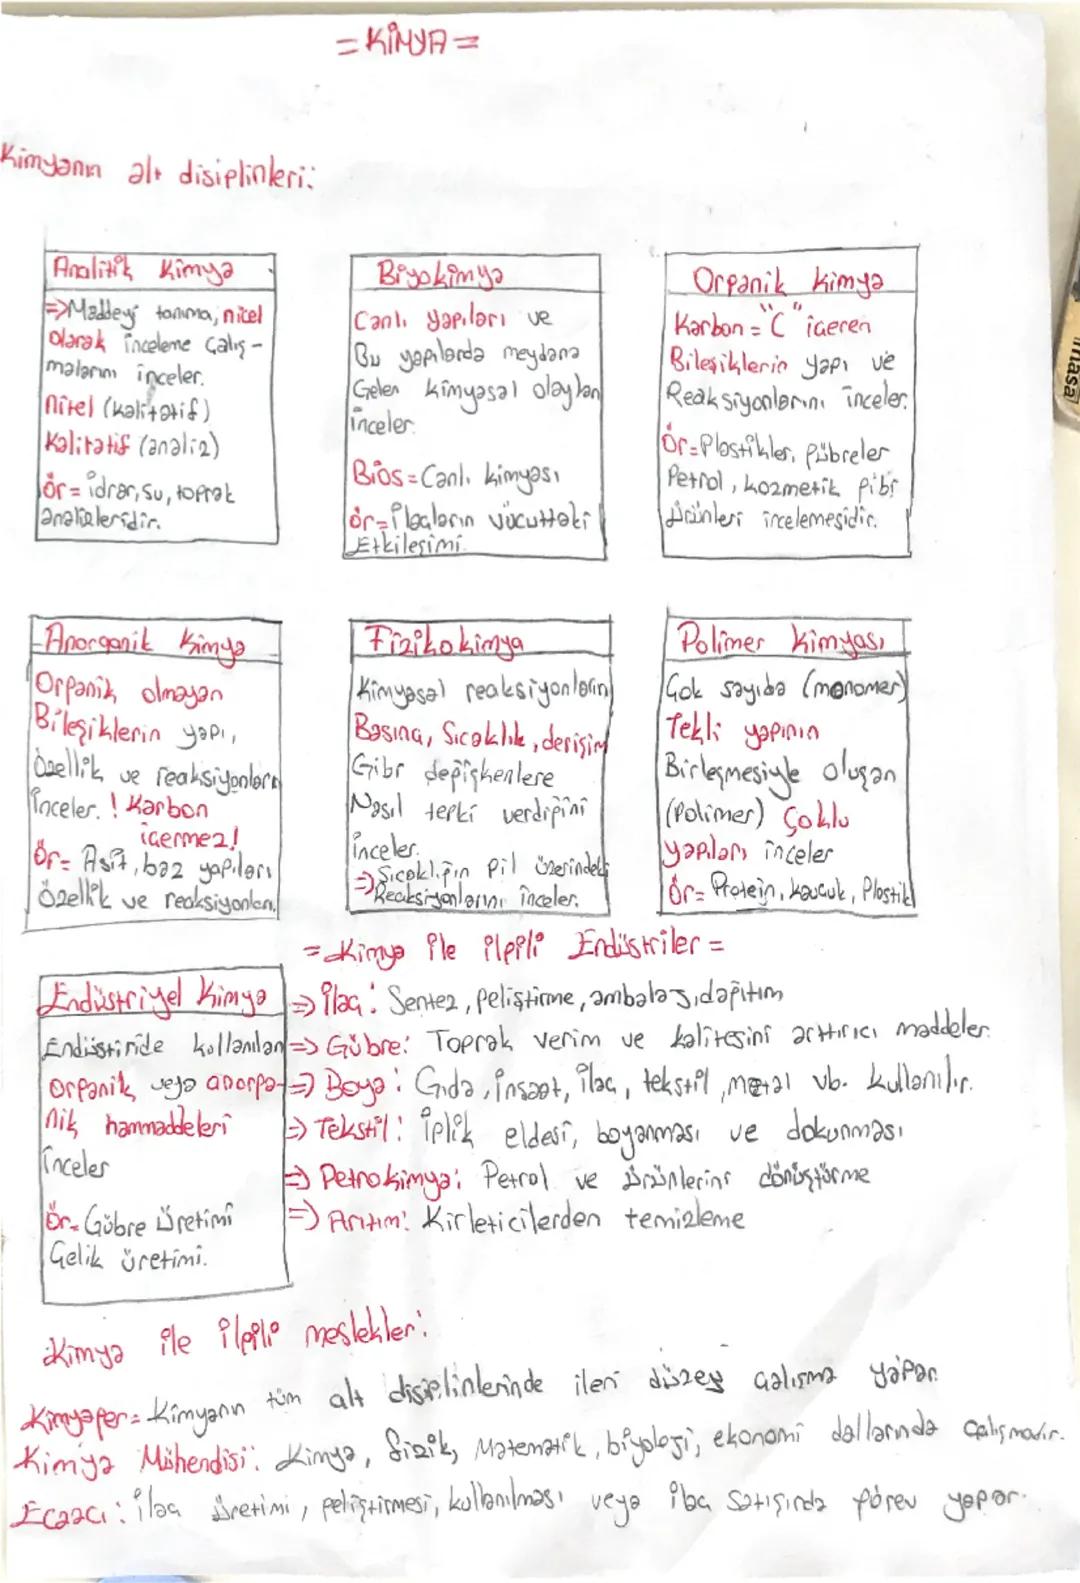 = KİMYA =
Kimyanın alt disiplinleri:
Analitik Kimya
=> Maddeyi tanıma, nicel
olarak inceleme çalış-
malarını inceler.
Nitel (kalitatif)
Kalitatif (analiz)
ör = idrar, su, toprak
analizleridir.
Biyokimya
Canlı yapıları ve
Bu yapılarda meydana
Gelen kimyasal olayları
inceler.
Bios = Canlı kimyası
ör = ilaçların vücuttaki
Etkileşimi.
Organik Kimya
Karbon = "C" içeren
Bileşiklerin yapı ve
Reaksiyonlarını inceler.
Ör = Plastikler, gübreler
Petrol, kozmetik gibi
ürünleri incelemesidir.
Anorganik Kimya
Organik olmayan
Bileşiklerin yapı,
özellik ve reaksiyonların
inceler. ! Karbon
içermez!
Ör = Asit, baz yapıları
özellik ve reaksiyonları.
Fizikokimya
Kimyasal reaksiyonların
Basınç, Sıcaklık, derişim
Gibi değişkenlere
Nasıl tepki verdiğini
inceler.
=> Sıcaklığın pil üzerindeki
Reaksiyonlarını inceler.
Polimer Kimyası
Çok sayıda (monomer)
Tekli yapının
Birleşmesiyle oluşan
(Polimer) Çoklu
yapıları inceler
Ör = Protein, kauçuk, Plastik
Endüstriyel Kimya
Endüstiride kullanılan
organik veya anorga-
nik hammaddeleri
inceler
Ör = Gübre üretimi
Çelik üretimi.
= Kimya ile ilgili Endüstriler =
=> ilaç: Sentez, geliştirme, ambalaj, dağıtım
=> Gübre: Toprak verim ve kalitesini arttırıcı maddeler.
=> Boya: Gıda, inşaat, ilaç, tekstil, metal vb. kullanılır.
=> Tekstil: iplik eldesi, boyanması ve dokunması
=> Petrokimya: Petrol ve ürünlerini dönüştürme
=> Arıtım: Kirleticilerden temizleme
Kimya ile ilgili meslekler:
Kimyager = Kimyanın tüm alt disiplinlerinde ileri düzey çalışma yapar.
Kimya Mühendisi: Kimya, fizik, Matematik, biyoloji, ekonomi dallarında çalışmadır.
Eczacı: ilaç üretimi, geliştirmesi, kullanılması veya ilaç satışında görev yapar.